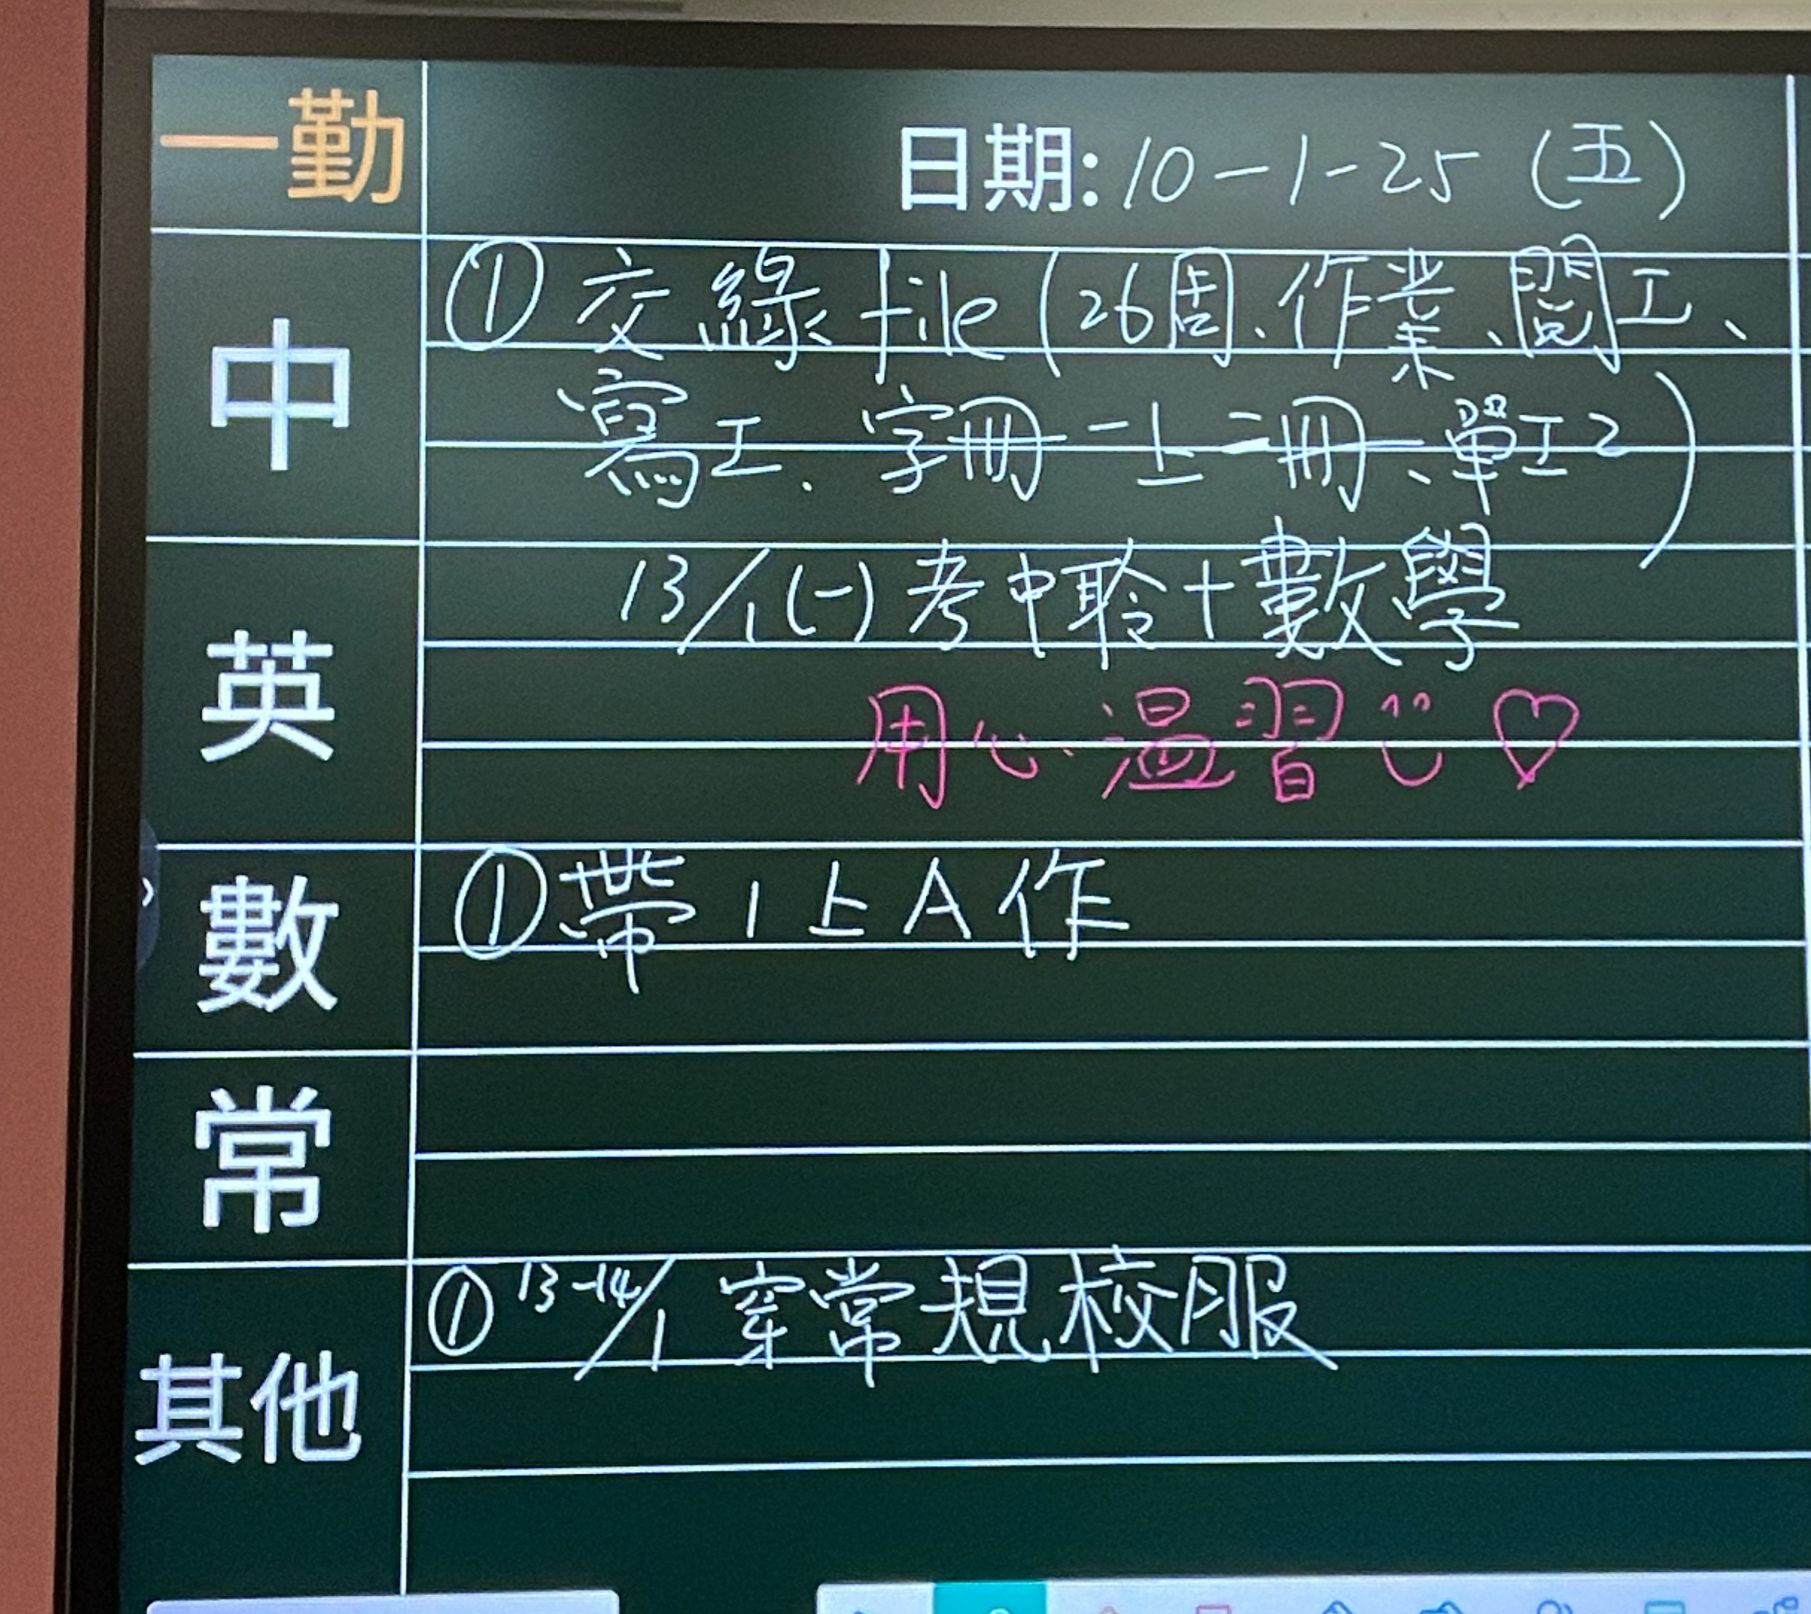 一勤
日期:10-1-25 (五)
中
①交綠file(26周、作業、閱工、
寫工、字冊一上二冊、單工2)
英
13/1(一)考中聆+數學
用心溫習 ♡
數
①帶1上A作
常
其他
①13-14/1 穿常規校服